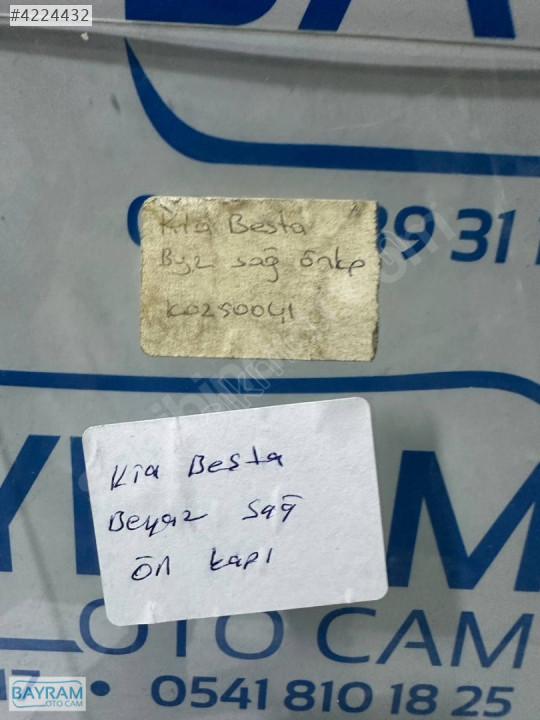 #4224432
39 31 1
Kia Besta
Byz sağ önkp
K0250041
Kia Besta
Beyaz sağ
ön kapı
BAYRAM
OTO CAM
0541 810 18 25
BAYRAM
OTO CAM